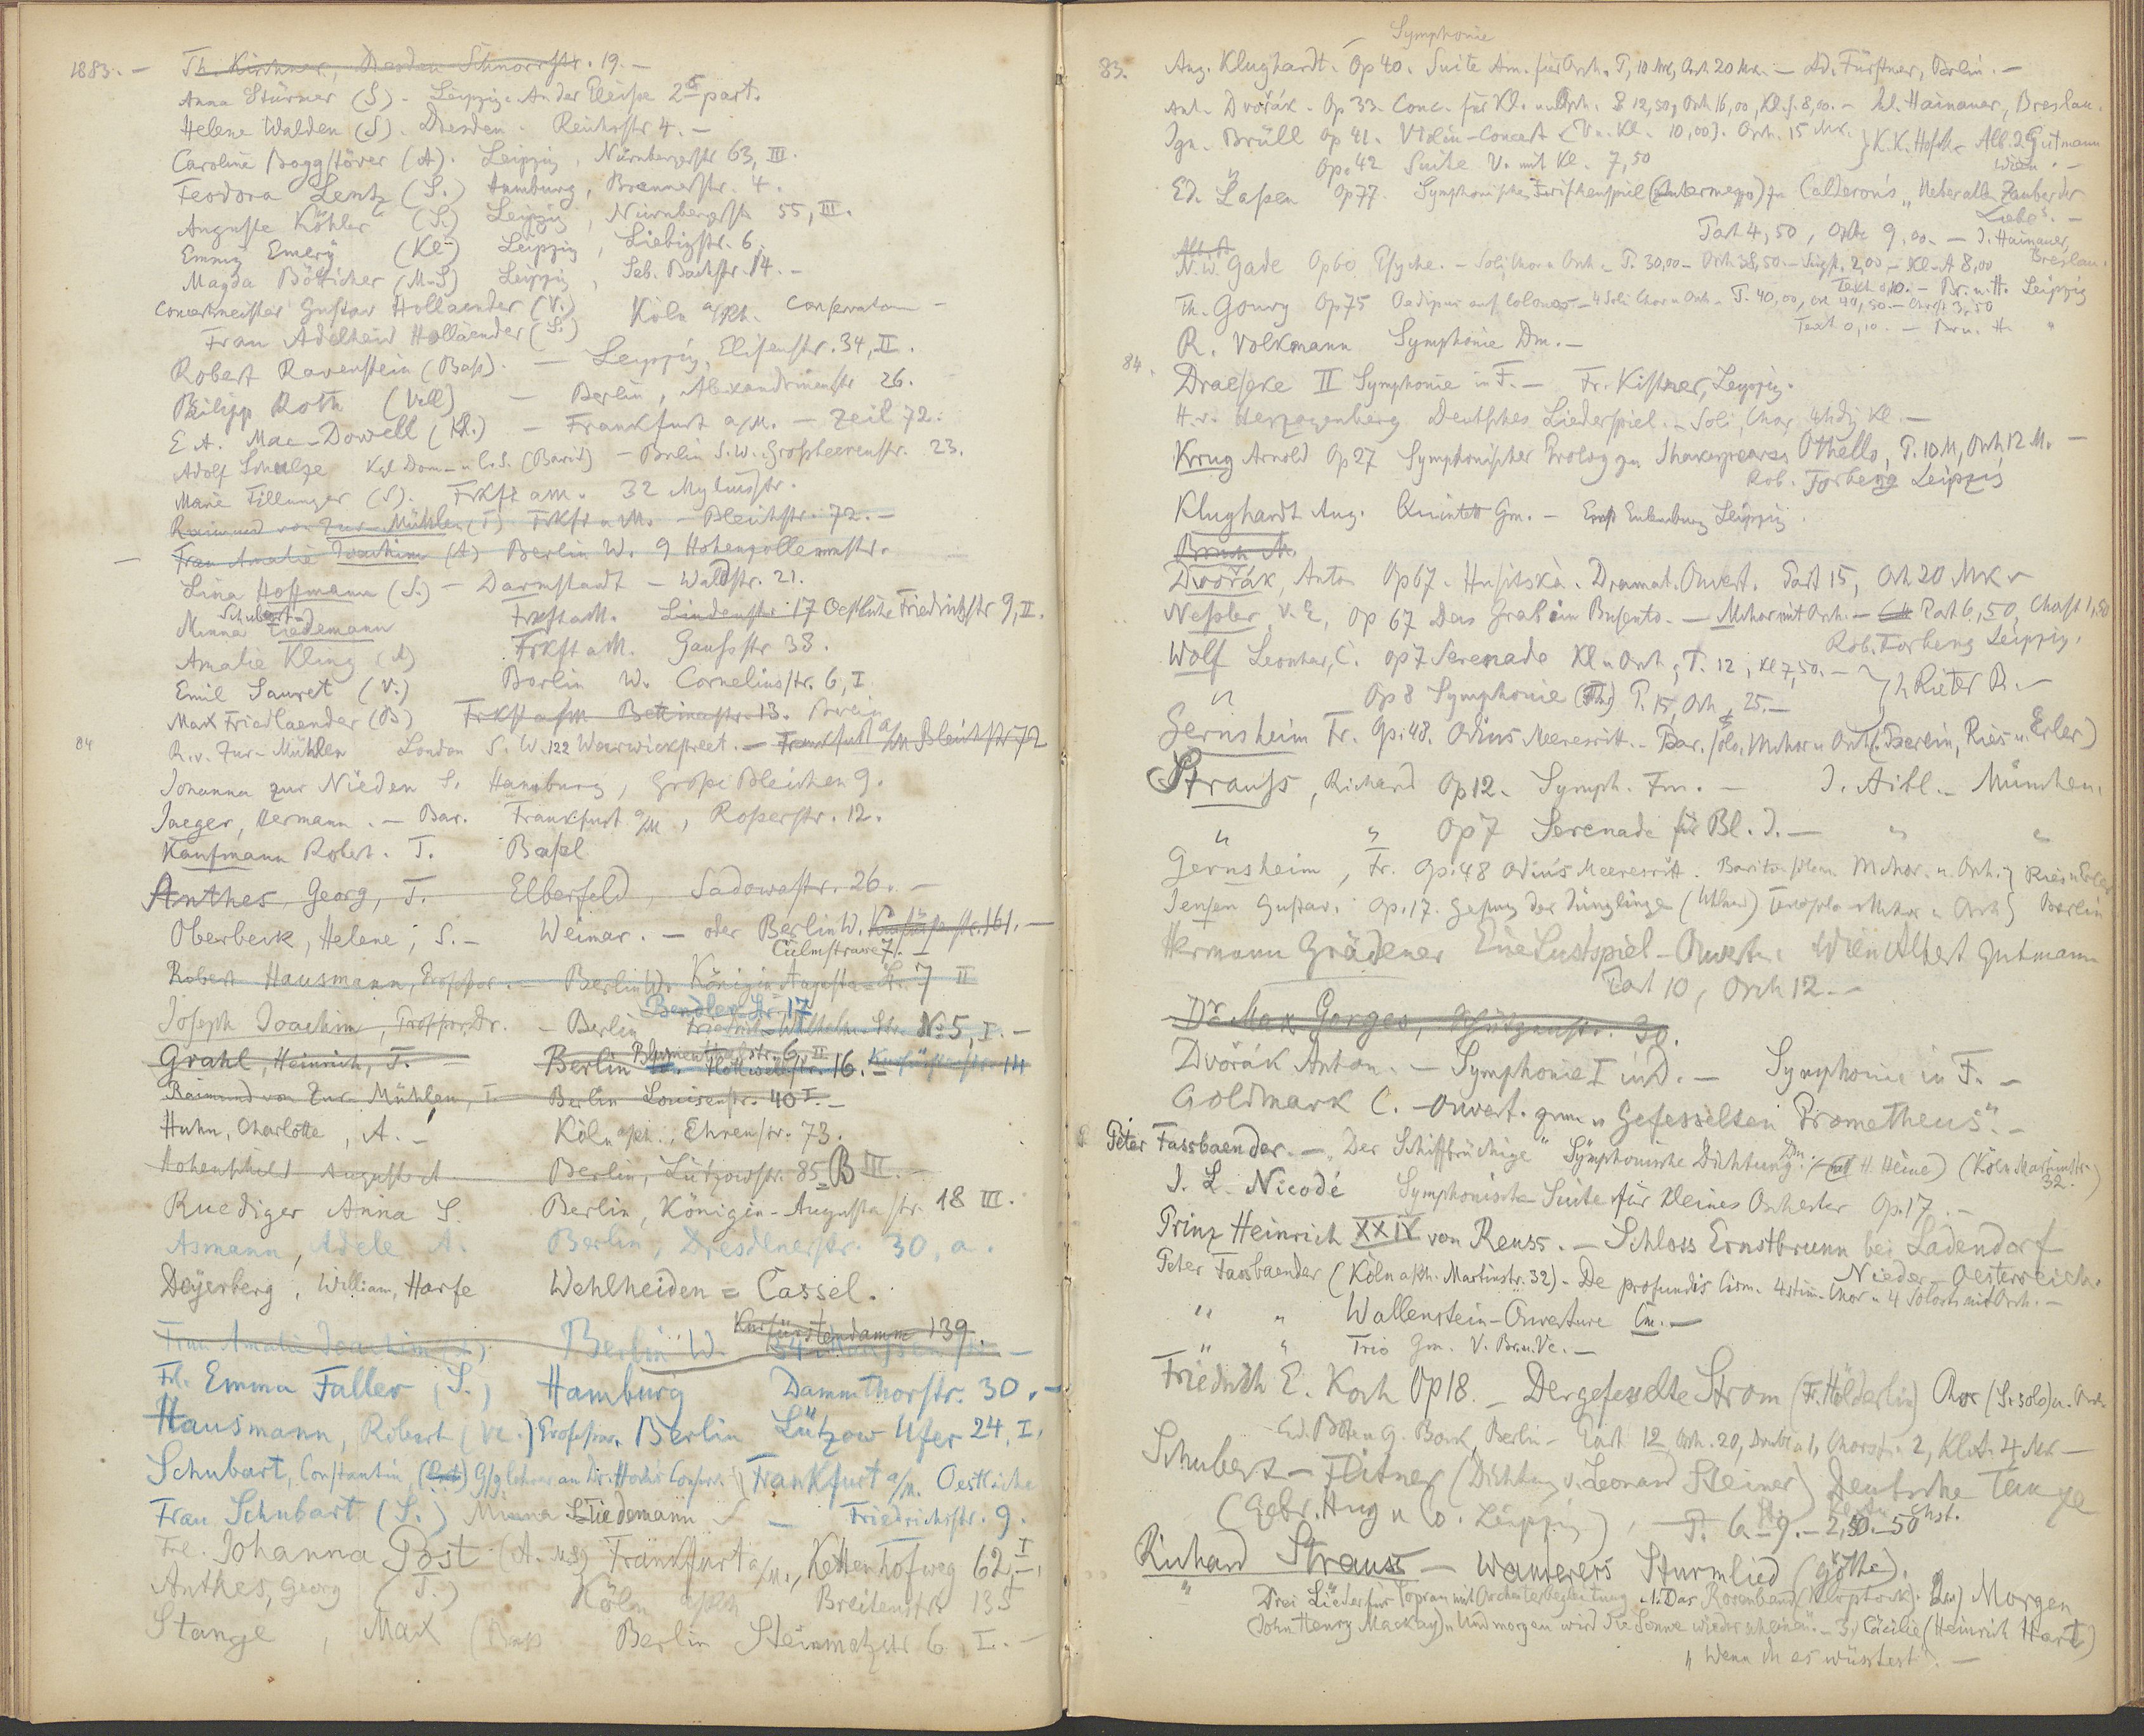 1883. — Th. Kirchner, Dresden Schnorrstr. 19. —
Anna Stürmer (S). Leipzig. An der Pleiße 2c part.
Helene Walden (S). Dresden. Reichsstr 4. —
Caroline Boggstöver (A). Leipzig, Nürnbergerstr 63, III.
Feodora Lentz (S.) Hamburg, Brennerstr. 4.
Auguste Köhler (S.) Leipzig, Nürnbergerstr 55, III.
Emmy Emery (Kl) Leipzig, Liebigstr. 6.
Magda Bötticher (M-S) Leipzig, Seb. Bachstr. 14. —
Concertmeister Gustav Hollaender (V.) Köln a/Rh. Conservatorium —
Frau Adelheid Hollaender (S.)
Robert Ravenstein (Baß). — Leipzig, Elisenstr. 34, II.
Philipp Roth (Vcll) — Berlin, Alexandrinenstr 26.
E. A. Mac-Dowell (Kl.) — Frankfurt a/M. — Zeil 72.
Adolf Schulze Kgl Dom- (Barit) — Berlin S.W. Großbeerenstr. 23.
Marie Fillunger (S). Frkft aM. 32 Myliusstr.
Raimund von Zur-Mühlen (T) Frkft a M. — Bleichstr. 72. —
— Frau Amalie Joachim (A) Berlin W. 9 Hohenzollernstr.
Lina Hoffmann (S.) — Darmstadt — Waldstr. 21.
Schubart-
Minna Tiedemann Frkft aM. Lindenstr. 17 Oestliche Friedrichstr 9, II.
Amalie Kling (A) Frkft aM. Gaussstr 38.
Emil Sauret (V.) Berlin W. Corneliusstr. 6, I
Max Friedlaender (B) Frkft a/M Bettinastr. 13. Berlin
84 R. v. Zur-Mühlen London S.W. 122 Warwickstreet. — Frankfurt a/M Bleichstr 72
Johanna zur Nieden S. Hamburg, Große Bleichen 9.
Jaeger, Hermann. — Bar. Frankfurt a/M, Roßerstr. 12.
Kaufmann Robert. T. Basel
Anthes, Georg, T. Elberfeld, Sadowastr. 26. —
Oberbeck, Helene, S. — Weimar. — oder Berlin W. Kurfürstenstr. 161. —
Culmstrasse 7. —
Robert Hausmann, Professor. — Berlin W. Königin Augusta-Str. 7 II
Bendler Str. 17
Joseph Joachim, Professor Dr. — Berlin Friedrich-Wilhelm-Str. No 5, I. —
Blumenthalstr. 6, II
Grahl, Heinrich, T. — Berlin W. Flottwellstr. 16. — Kurfürstenstr. 14
Raimund von Zur-Mühlen, T. Berlin Louisenstr. 40 I. —
Huhn, Charlotte, A. — Köln a/Rh., Ehrenstr. 73.
Hohenschild Auguste A. Berlin, Lützowstr. 85 B III. —
Ruediger Anna S. Berlin, Königin-Augusta str. 18 III.
Asmann, Adele A. Berlin, Dresdenerstr. 30, a.
Deyerberg, William, Harfe Wehlheiden = Cassel.
Kurfürstendamm 139.
Frau Amalie Joachim (A) Berlin W. —
Frl. Emma Faller (S.) Hamburg Dammthorstr. 30. —
Hausmann, Robert (Vc.) Professor, Berlin Lützow Ufer 24, I.
Schubart, Constantin, Gsglehrer an Dr. Hochs Conserv. Frankfurt a/M. Oestliche
Frau Schubart (S.) Minna Tiedemann S — Friedrichsstr. 9.
Frl. Johanna Post (A. MS) Frankfurt a/M., Kettenhofweg 62, I.
Anthes, Georg (T.) Köln a/Rh Breitenstr. 135
Stange, Max (Bass Berlin Steinmetzstr 6, I. —
Symphonie
83. Aug. Klughardt. Op 40. Suite Am. für Orch. P, 10 Mk, Orch 20 Mk. — Ad. Fürstner, Berlin. —
Ant. Dvořák. Op 33. Conc. für Kl. und Orch. 12,50, Orch 16,00, Kl. S. 8,00. — Jul. Hainauer, Breslau.
Ign. Brüll Op 41. Violin-Concert (V u. Kl. 10,00). Orch. 15 Mk. } K.K. Hofh. Alb. J. Gutmann
" Op. 42 Suite V. mit Kl. 7,50 Wien. —
Ed. Lassen Op 77. Symphonisches Zwischenspiel (Intermezzo) zu Calderon's "Ueber allen Zauber der
Liebe". —
Part 4,50, Orch 9,00. — J. Hainauer, Breslau.
N. W. Gade Op 60 Psyche. — Soli, Chor u Orch. P. 30,00 — Orch 38,50. — Singst. 2,00 — Kl-A 8,00
Text 0,10. — Br. u. H. Leipzig
Th. Gouvy Op 75 Oedipus auf Colonos — 4 Soli Chor u Orch. P. 40,00, Orch 40,50. — Chorst 3,50
Text 0,10. — Br. u. H. "
R. Volkmann Symphonie Dm. —
84. Draeseke II Symphonie in F. — Fr. Kistner, Leipzig.
H. v. Herzogenberg Deutsches Liederspiel. — Soli, Chor, 4hdg Kl. —
Krug Arnold Op 27 Symphonischer Prolog zu Shakespeares Othello, P. 10 M, Orch 12 M. —
Rob. Forberg Leipzig
Klughardt Aug. Quintett Gm. — Ernst Eulenburg Leipzig.
Bruch M.
Dvořák, Anton Op 67. Husitska. Dramat. Ouvert. Part 15, Orch 20 Mk
Neßler V. E, Op 67 Das Grab im Busento. — Mchor mit Orch. — Part 6,50, Chorst 1,50
Rob. Forberg Leipzig.
Wolf Leonhard, C. Op 7 Serenade Kl u Orch, P. 12, Kl 7,50. — } Rieter B. —
" Op 8 Symphonie P. 15, Orch, 25. —
Gernsheim Fr. Op. 48. Odins Meeresritt. — Bar. solo, Mchor u Orch. (Berlin, Ries u. Erler)
Strauss, Richard Op 12. Symph. Fm. — J. Aibl. — München.
" " Op 7 Serenade für Bl. I. — " "
Gernsheim, Fr. Op. 48 Odins Meeresritt. Bariton solo Mchor. u. Orch. } Ries u Erler
Jensen Gustav. Op. 17. Gesang der Jünglinge (Uhland) Tenorsolo Mchor u Orch } Berlin
Hermann Grädener Eine Lustspiel-Ouverture Wien Albert Gutmann
Part 10, Orch 12. —
Dr. Max Gorges, Schützenstr. 30.
Dvořák Anton. — Symphonie I in D. — Symphonie in F. —
Goldmark C. — Ouvert. zum "Gefesselten Prometheus". —
Peter Fassbaender. — "Der Schiffbrüchige" Symphonische Dichtung. Dm. (H. Heine) (Köln Martinstr. 32.)
J. L. Nicodé Symphonische Suite für kleines Orchester Op. 17. —
Prinz Heinrich XXIV von Reuss. — Schloss Ernstbrunn bei Ladendorf
Nieder-Oesterreich.
Peter Fassbaender (Köln a/Rh. Martinstr. 32) — De profundis Cism. 4stim. Chor u 4 Solost mit Orch. —
" " Wallenstein-Ouverture Cm. —
" " Trio Gm. V. Br. u. Vc. —
Friedrich E. Koch Op 18. — Der gefesselte Strom (F. Hölderlin) Chor (S. solo) u. Orch.
Ed. Bote u G. Bock, Berlin — Part 12, Orch. 20, Chorst. 2, Kl.A. 4 Mk —
Schubert — Flitner (Dichtung v. Leonard Steiner) Deutsche Tänze
(Gebr. Hug u Co. Leipzig), P. 6. — 9. — 2,50. — 50 Chst.
Richard Strauss — Wanderers Sturmlied (Göthe).
" Drei Lieder für Sopran mit Orchesterbegleitung. 1. Das Rosenband (Klopstock). 2.) Morgen
(John Henry Mackay) "Und morgen wird die Sonne wieder scheinen". — 3.) Cäcilie (Heinrich Hart)
"Wenn du es wüsstest". —